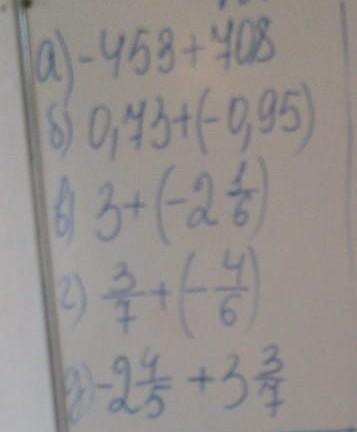 а) -453+708
б) 0,73+(-0,95)
в) 3+(-2 1/6)
г) 3/7+(-4/6)
д) -2 4/5+3 3/7